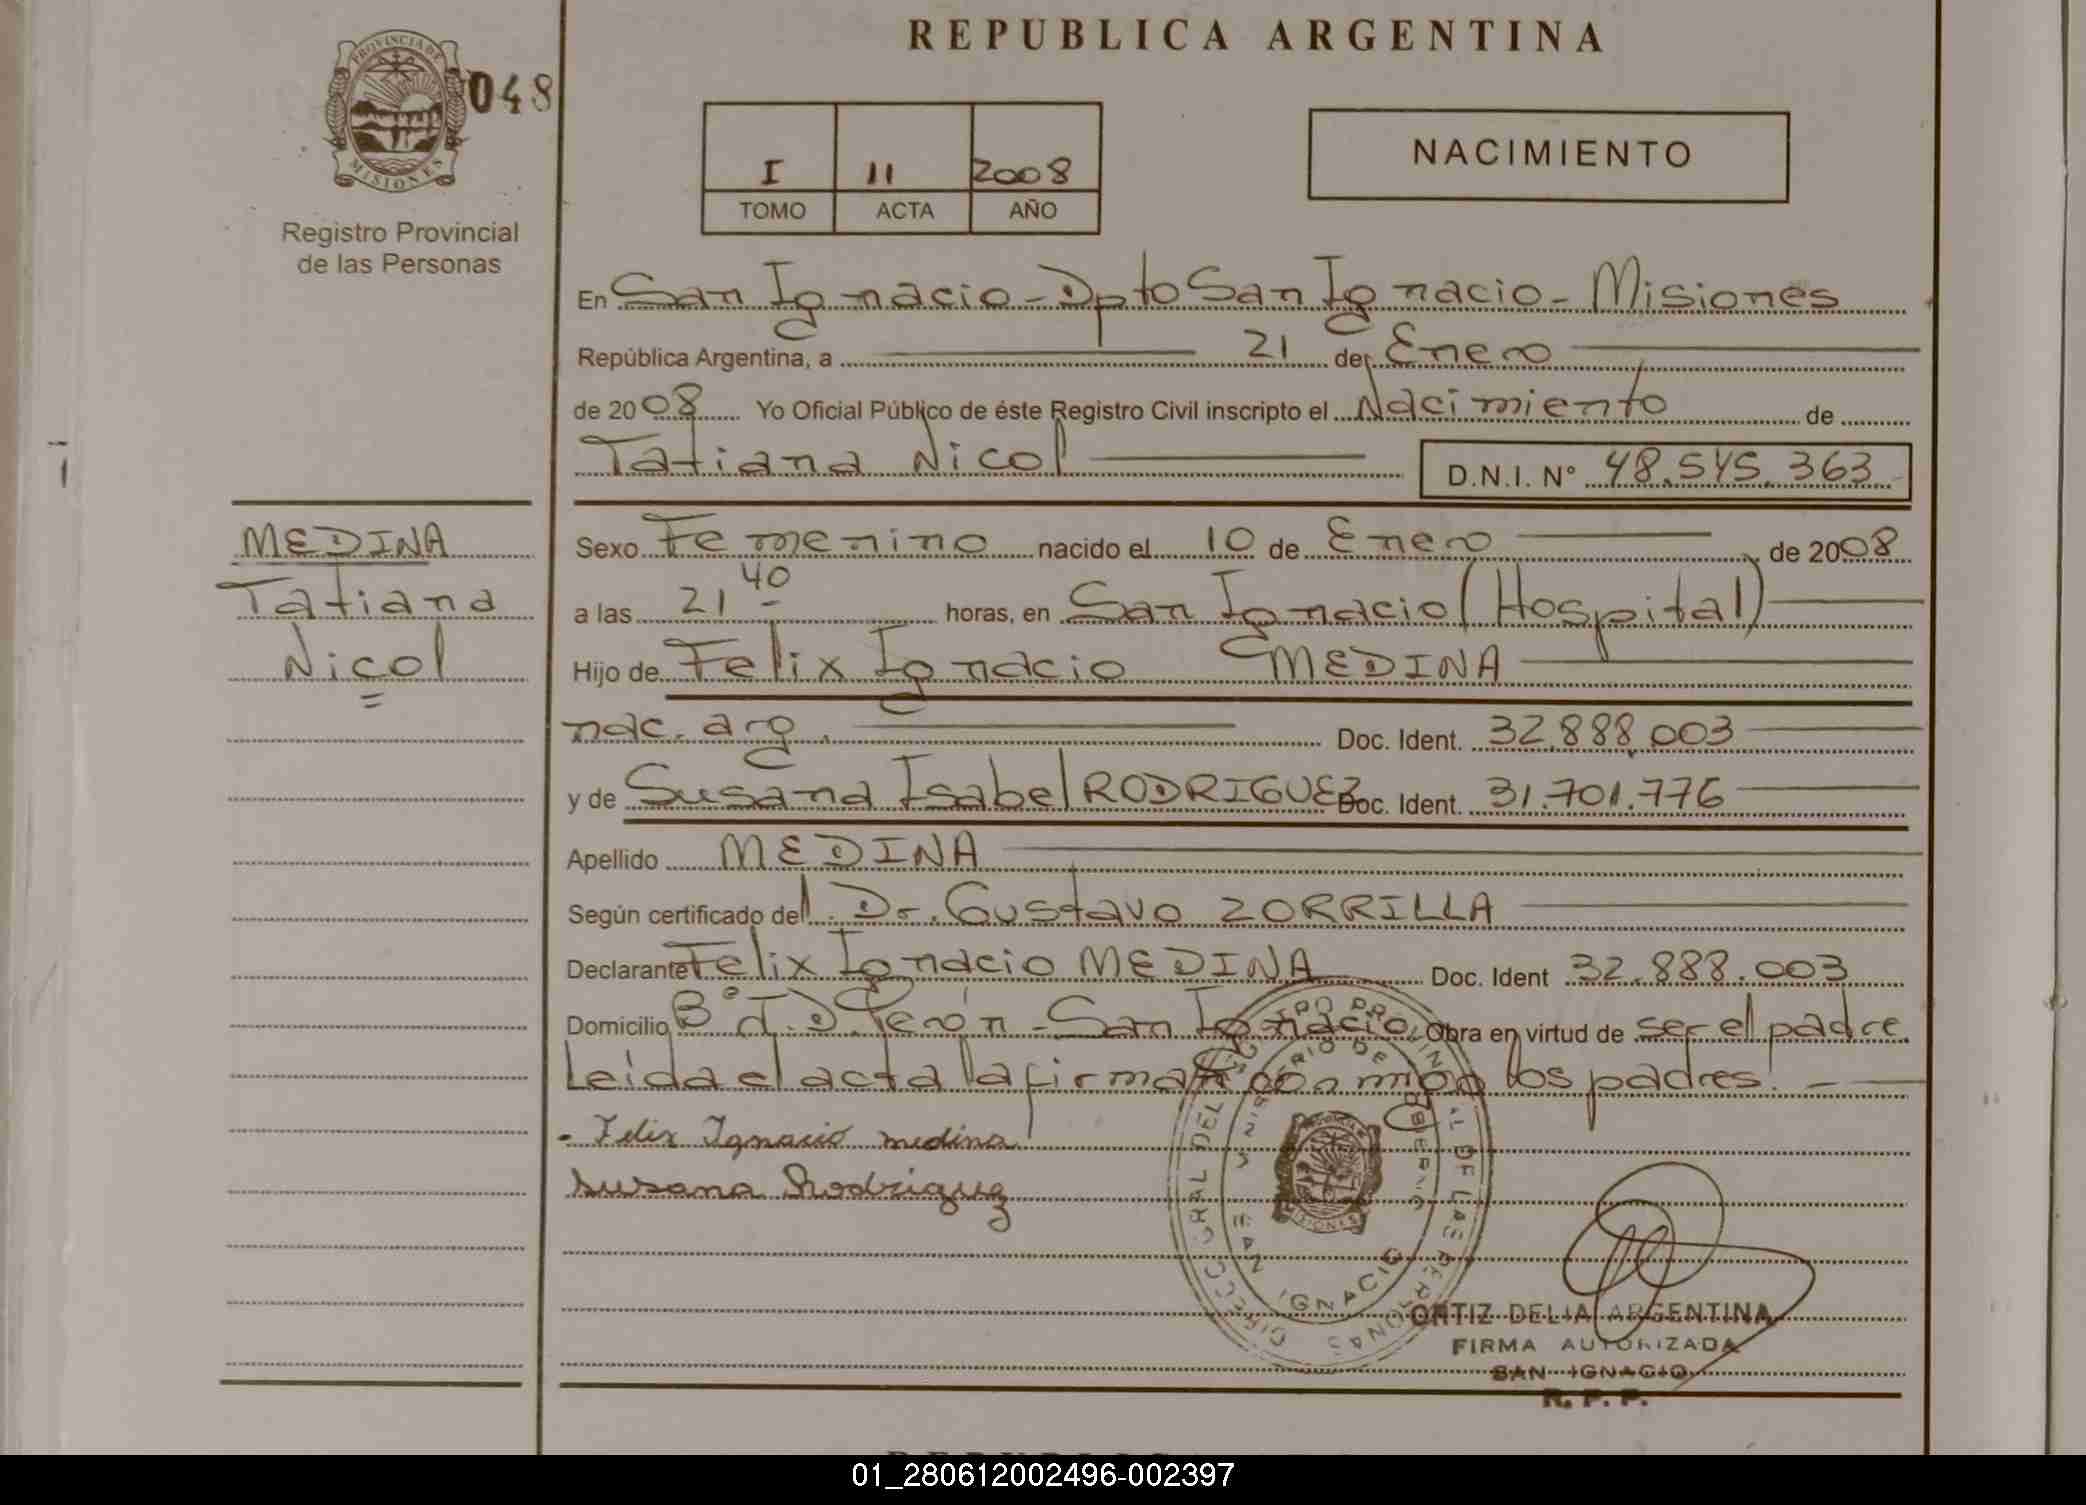 REPUBLICA ARGENTINA
PROVINCIA DE
MISIONES
048
Registro Provincial
de las Personas
I 11 2008
TOMO ACTA AÑO
NACIMIENTO
En San Ignacio - Dpto San Ignacio - Misiones
República Argentina, a 21 de Enero
de 2008 Yo Oficial Público de éste Registro Civil inscripto el Nacimiento de
Tatiana Nicol D.N.I. Nº 48.545.363
MEDINA
Tatiana
Nicol
Sexo Femenino nacido el 10 de Enero de 2008
a las 21 40 horas, en San Ignacio (Hospital)
Hijo de Felix Ignacio MEDINA
nac. arg. Doc. Ident. 32.888.003
y de Susana Isabel RODRIGUEZ Doc. Ident. 31.701.776
Apellido MEDINA
Según certificado del Dr. Gustavo ZORRILLA
Declarante Felix Ignacio MEDINA Doc. Ident 32.888.003
Domicilio Bº J.D. Perón - San Ignacio Obra en virtud de ser el padre
Leída el acta la firman conmigo los padres.
Felix Ignacio medina
Susana Rodriguez
SAN IGNACIO
MISIONES
ORTIZ DELIA ARGENTINA
FIRMA AUTORIZADA
SAN IGNACIO
R. P. P.
01_280612002496-002397